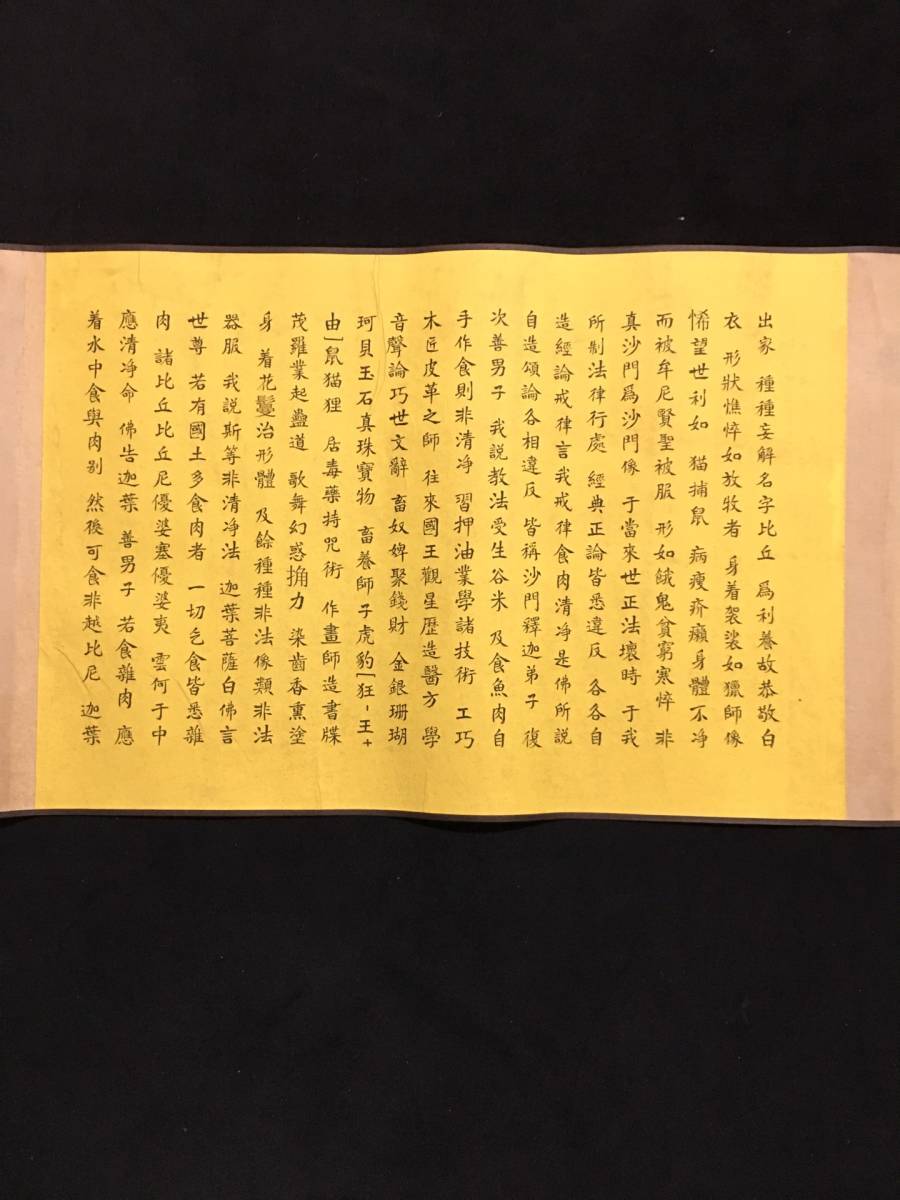 出家　種種妄解名字比丘　爲利養故恭敬白
衣　形狀憔悴如放牧者　身着袈裟如獵師像
悕望世利如　猫捕鼠　病瘦疥癩身體不凈
而被牟尼賢聖被服　形如餓鬼貧窮寒悴　非
真沙門爲沙門像　于當來世正法壞時　于我
所制法律行處　經典正論皆悉違反　各各自
造經論戒律言我戒律食肉清凈是佛所説
自造頌論各相違反　皆稱沙門釋迦弟子　復
次善男子　我説教法受生谷米　及食魚肉自
手作食則非清凈　習押油業學諸技術　工巧
木匠皮革之師　往來國王觀星歷造醫方　學
音聲論巧世文辭　畜奴婢聚錢財　金銀珊瑚
珂貝玉石真珠寶物　畜養師子虎豹[狂-王+
由]鼠猫狸　居毒藥持咒術　作畫師造書牒
茂羅業起蠱道　歌舞幻惑捔力　染齒香熏塗
身　着花鬘治形體　及餘種種非法像類非法
器服　我説斯等非清凈法　迦葉菩薩白佛言
世尊　若有國土多食肉者　一切乞食皆悉雜
肉　諸比丘比丘尼優婆塞優婆夷　雲何于中
應清凈命　佛告迦葉　善男子　若食雜肉　應
着水中食與肉别　然後可食非越比尼　迦葉